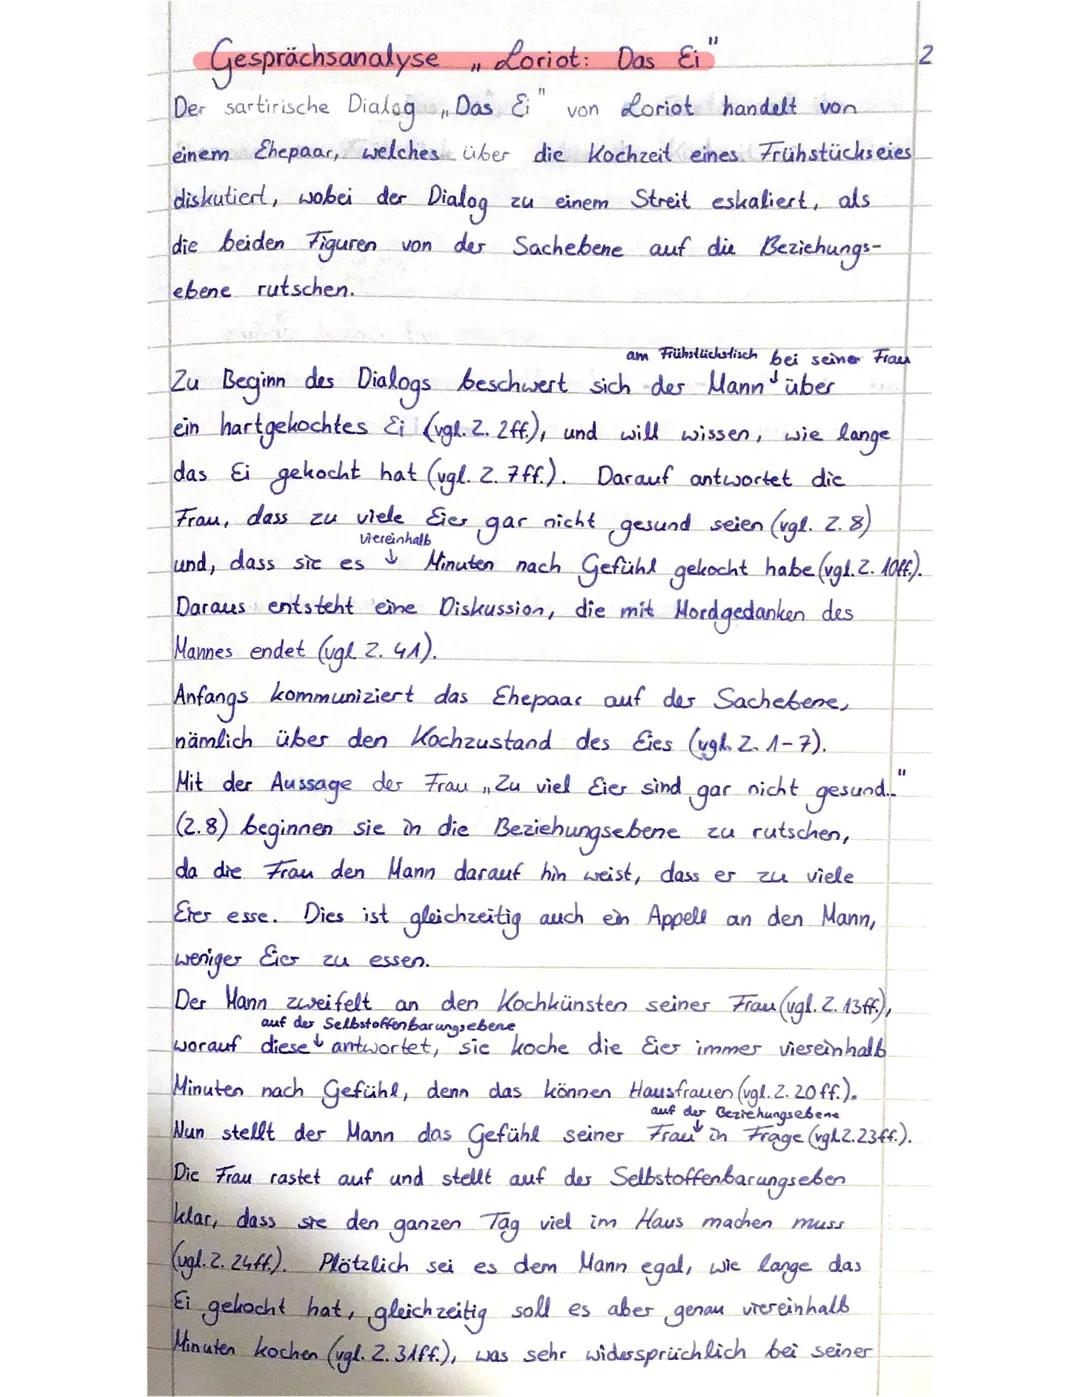 Gesprächsanalyse „Loriot: Das Ei"
2
Der sartirische Dialog „Das Ei" von Loriot handelt von
einem Ehepaar, welches über die Kochzeit eines Frühstückseies
diskutiert, wobei der Dialog zu einem Streit eskaliert, als
die beiden Figuren von der Sachebene auf die Beziehungs-
ebene rutschen.
am Frühstückstisch bei seiner Frau
Zu Beginn des Dialogs beschwert sich der Mann ↓ über
ein hartgekochtes Ei (vgl. Z. 2ff.), und will wissen, wie lange
das Ei gekocht hat (vgl. Z. 7ff.). Darauf antwortet die
Frau, dass zu viele Eier gar nicht gesund seien (vgl. Z. 8)
viereinhalb
und, dass sie es ↓ Minuten nach Gefühl gekocht habe (vgl. Z. 10ff.).
Daraus entsteht eine Diskussion, die mit Mordgedanken des
Mannes endet (vgl Z. 41).
Anfangs kommuniziert das Ehepaar auf der Sachebene,
nämlich über den Kochzustand des Eies (vgl. Z. 1-7).
Mit der Aussage der Frau „Zu viel Eier sind gar nicht gesund.."
(Z.8) beginnen sie in die Beziehungsebene zu rutschen,
da die Frau den Mann darauf hin weist, dass er zu viele
Eier esse. Dies ist gleichzeitig auch ein Appell an den Mann,
weniger Eier zu essen.
Der Mann zweifelt an den Kochkünsten seiner Frau (vgl. Z. 13ff.),
auf der Selbstoffenbarungsebene
worauf diese ↓ antwortet, sie koche die Eier immer viereinhalb
Minuten nach Gefühl, denn das können Hausfrauen (vgl. Z. 20ff.).
auf der Beziehungsebene
Nun stellt der Mann das Gefühl seiner Frau ↓ in Frage (vgl Z. 23ff.).
Die Frau rastet auf und stellt auf der Selbstoffenbarungseben
klar, dass sie den ganzen Tag viel im Haus machen muss
(vgl. Z. 24ff.). Plötzlich sei es dem Mann egal, wie lange das
Ei gekocht hat, gleichzeitig soll es aber genau viereinhalb
Minuten kochen (vgl. Z. 31ff.), was sehr widersprüchlich bei seiner